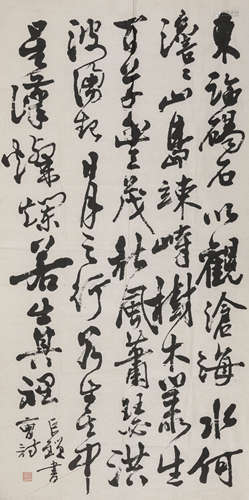 東臨碣石以觀滄海水何
澹澹山島竦峙樹木叢生
百草豐茂秋風蕭瑟洪
波湧起日月之行若出其中
星漢燦爛若出其裡
曹詩
書